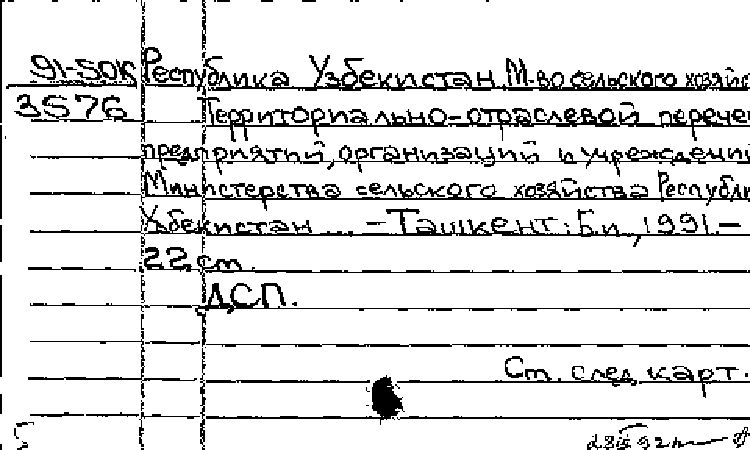 91-50К Республика Узбекистан. М-во сельского хозяйс
3576 Территориально-отраслевой перече
предприятий, организаций и учреждений
Министерства сельского хозяйства Республи
Узбекистан ... – Ташкент: Б.и., 1991.–
22 см.
ДСП.
См. след. карт.
5